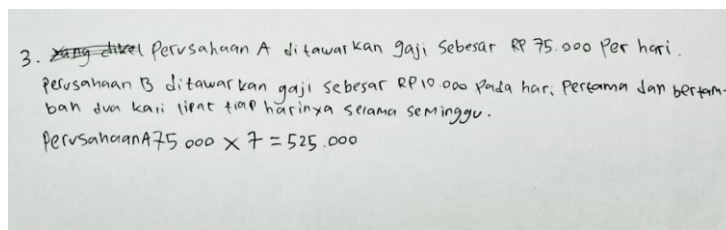 3. Perusahaan A ditawarkan gaji sebesar RP 75.000 Per hari.
Perusahaan B ditawarkan gaji sebesar RP 10.000 Pada hari Pertama dan bertam-
bah dua kali lipat tiap harinya selama seminggu.
Perusahaan A 75 000 × 7 = 525.000